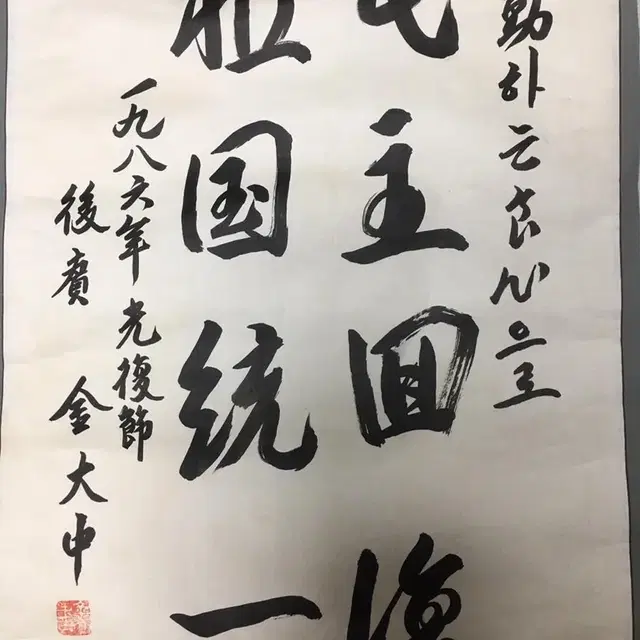 動하는良心으로
民主回復
祖国統一
一九八六年 光復節
後廣 金大中